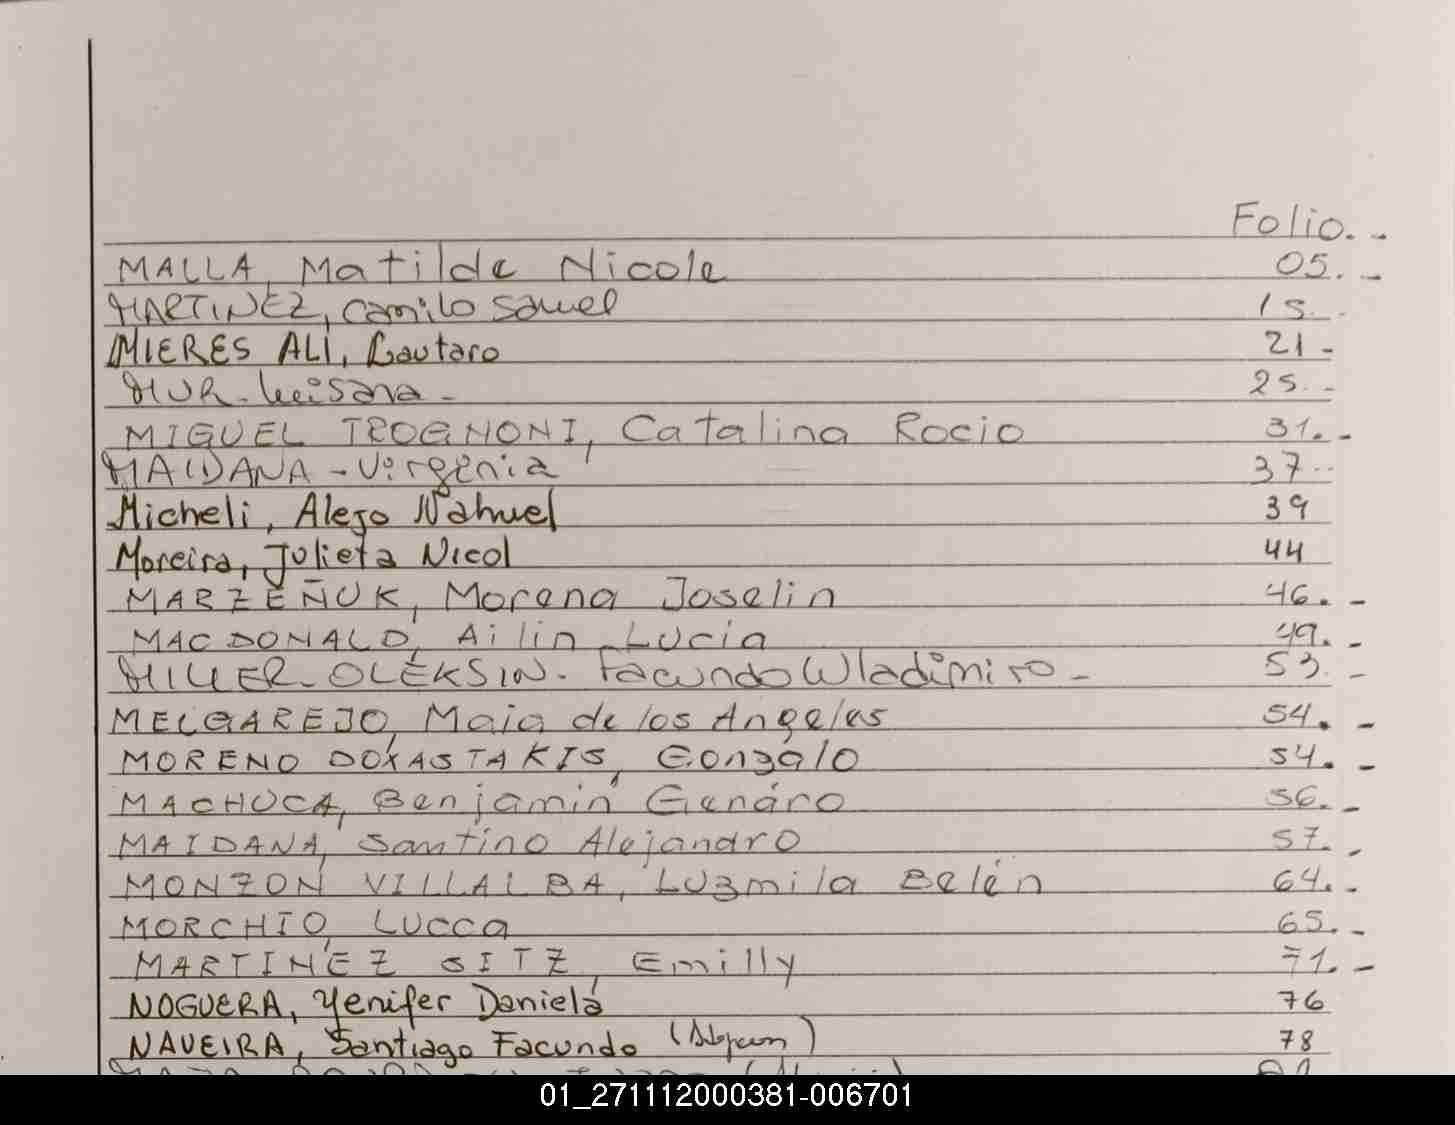 Folio.-
MALLA, Matilde Nicole 05.-
MARTINEZ, Camilo Samuel 15.
MIERES ALI, Lautaro 21-
MUR- Luisana- 25.-
MIGUEL TROGNONI, Catalina Rocio 31.-
MAIDANA - Virginia 37..
Micheli, Alejo Nahuel 39
Moreira, Julieta Nicol 44
MARZEÑUK, Morena Joselin 46.-
MACDONALD, Ailin Lucia 49.-
MILLER-OLEKSIN- Facundo Wladimiro- 53.-
MELGAREJO, Maia de los Angeles 54.-
MORENO DOXASTAKIS, Gonzalo 54.-
MACHUCA, Benjamin Genaro 56.-
MAIDANA, Santino Alejandro 57.-
MONZON VILLALBA, Luzmila Belén 64.-
MORCHIO, LUCCA 65.-
MARTINEZ SITZ, Emilly 71.-
NOGUERA, Yenifer Daniela 76
NAVEIRA, Santiago Facundo 78
01_271112000381-006701